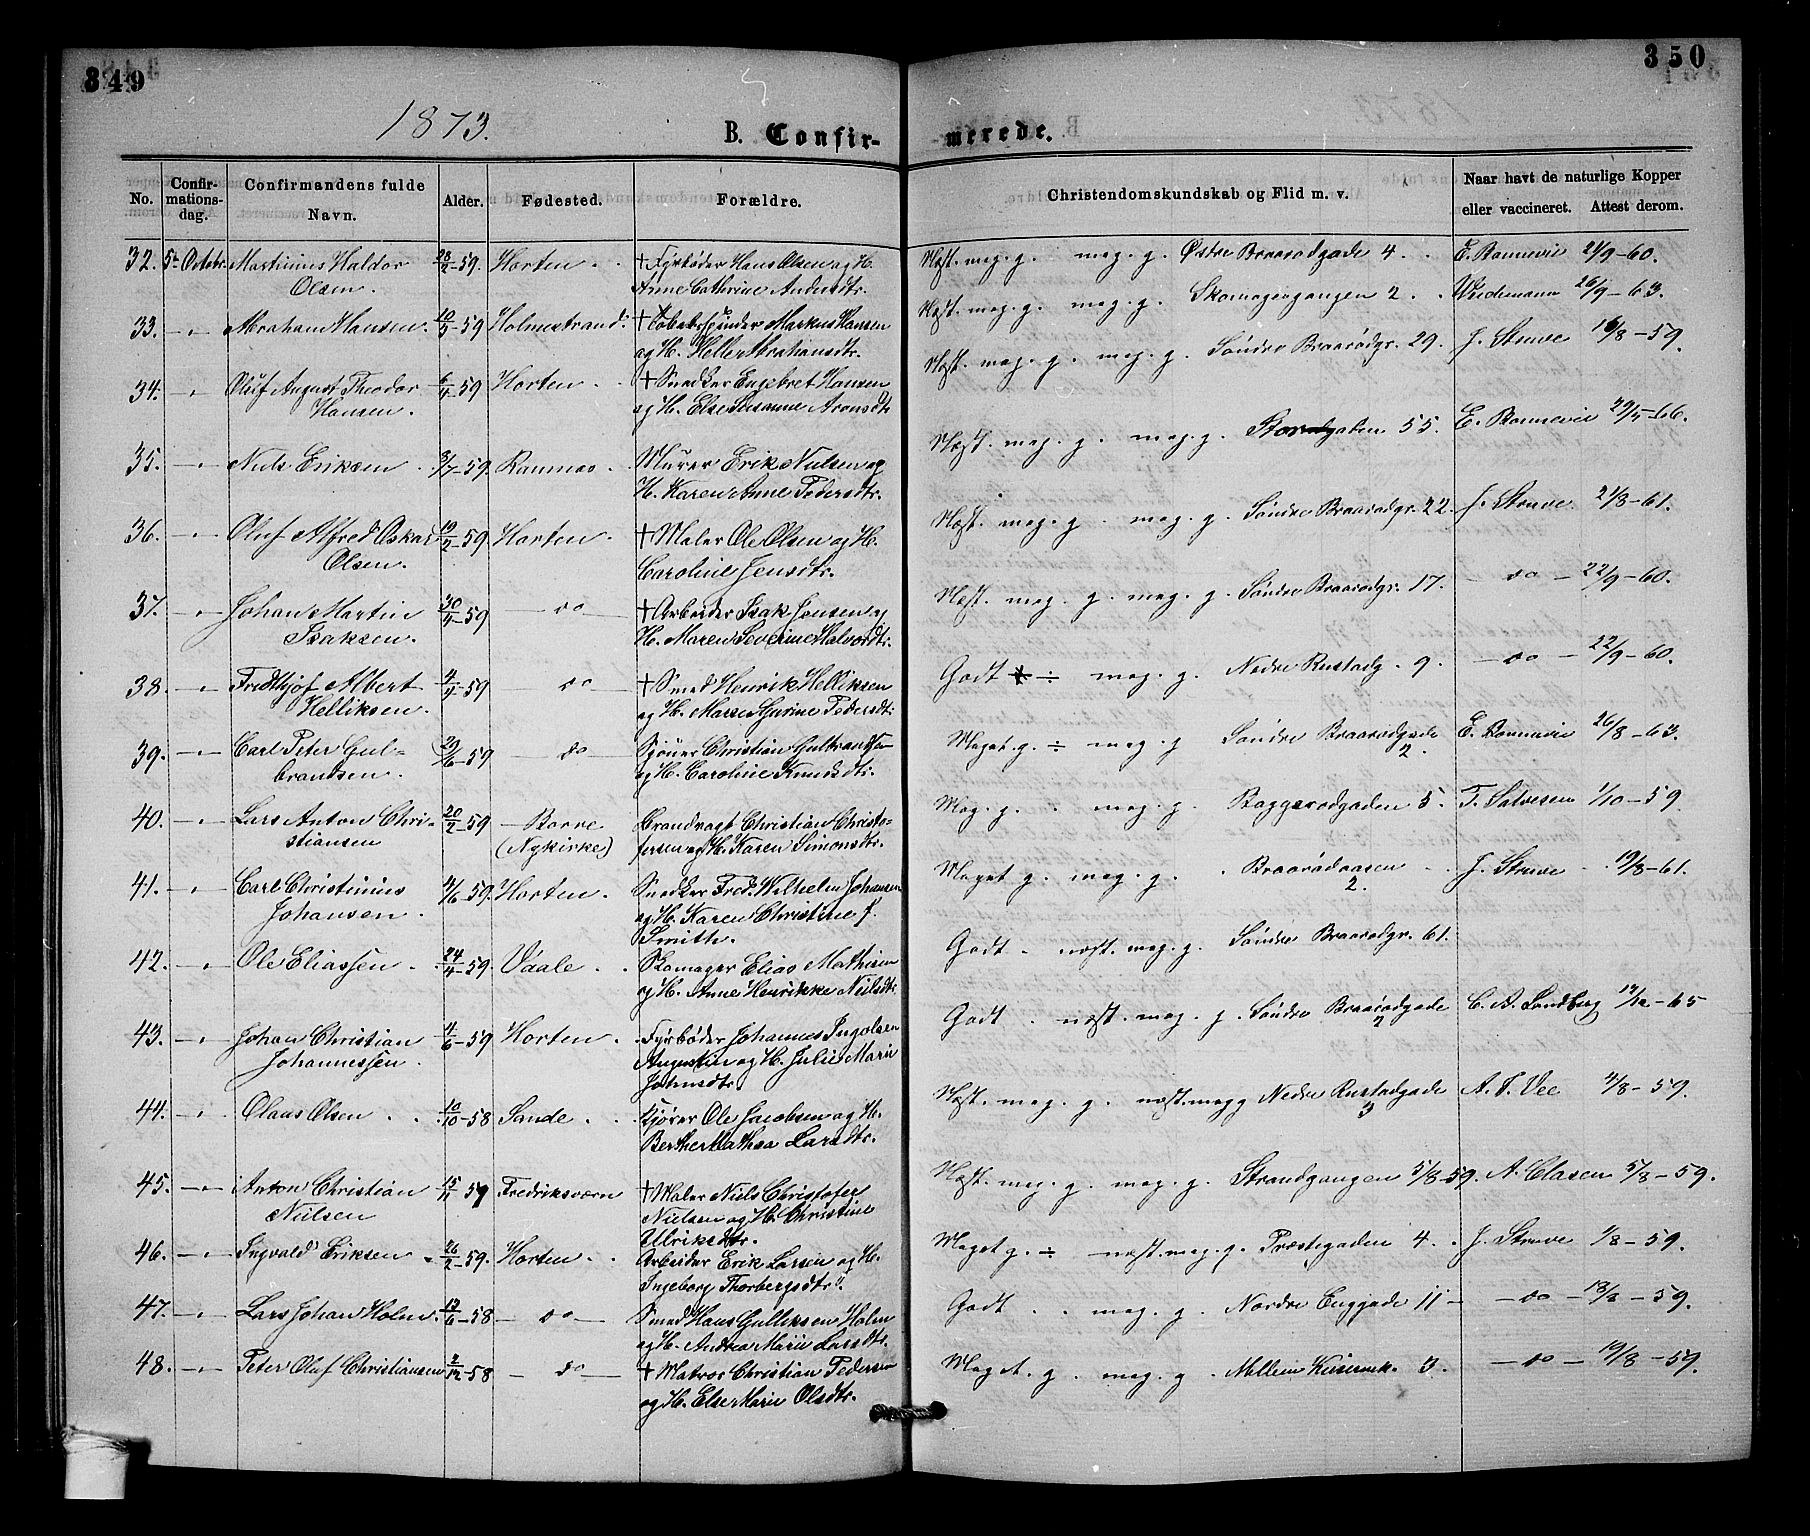 349
1873.
B. Confir-
No.
Confir-
mations-
dag.
Confirmandens fulde
Navn.
Alder.
Fødested.
Forældre.
32. 5te Octobr. Martinius Haldor 28/2-59. Horten . . † Fyrbøder Hans Olsen og H.
Olsen. Anne Cathrine Andersdtr.
33. -"- Abraham Hansen. 10/5-59 Holmestrand. † Tobaksspinder Markus Hansen
og H. Helle Abrahamsdtr.
34. -"- Oluf August Theodor 6/4-59 Horten . † Snedker Engebret Hansen
Hansen. og H. Else Susanne Aronsdtr
35. -"- Niels Eriksen . 3/7-59. Ramnæs . Murer Erik Nielsen og
H. Karen Anne Pedersdtr.
36. -"- Oluf Alfred Oskar 19/2-59 Horten . † Maler Ole Olsen og H.
Olsen. Caroline Jensdtr.
37. -"- Johan Martin 30/4-59 - do - † Arbeider Isak Jensen og
Isaksen. H. Maren Severine Halvorsdtr.
38. -"- Fredthjof Albert 4/4-59 do † Smed Henrik Helliksen
Helliksen. og H. Maren Gurine Pedersdtr.
39. -"- Carl Peter Gul- 29/6-59 - do Kjører Christian Gulbrandsen
brandsen. og H. Caroline Knudsdtr.
40. -"- Lars Anton Chri- 20/2-59 - Borre Brandvagt Christian Christo-
stiansen (Nykirke) fersen og H. Karen Simonsdtr.
41. -"- Carl Christinius 4/6-59. Horten . Snedker Fred. Wilhelm Johansen
Johansen . og H. Karen Christine f.
Smith.
42. -"- Ole Eliassen . 24/4-59. Vaale . . Skomager Elias Mathisen
og H. Anne Henrikke Nielsdtr.
43. -"- Johan Christian 4/6-59 Horten . Fyrbøder Johannes Ingolsen
Johannessen . og H. Julie Marie
Johnsdtr.
44. -"- Olaus Olsen . . 10/10-58 Sande . . Kjører Ole Jacobsen og H.
Berthe Mathea Larsdtr.
45. -"- Anton Christian 15/11-57 Fredriksværn † Maler Niels Christofer
Nielsen Nielsen og H. Christine
Ulriksdtr.
46. -"- Ingvald Eriksen . 26/2-59. Horten . . Arbeider Erik Larsen og H.
Ingeborg Thorbergsdtr.
47. -"- Lars Johan Holm. 12/6-58 - do - Smed Hans Gulliksen Holm
og H. Andrea Marie Larsdtr.
48. -"- Peter Oluf Christiansen 2/12-58 - do - † Matros Christian Pedersen
og H. Else Marie Olsdtr.
350
merede.
Christendomskundskab og Flid m. v.
Naar havt de naturlige Kopper
eller vaccineret. Attest derom.
Næst. meg. g. meg. g. Østre Braarødgade 4 . . E. Bonnevie 21/9-60.
Næst. meg. g. meg. g. Skomagergangen 2 . . Wiedemann 26/9-63.
Næst. meg. g. meg. g. Søndre Braarødgr. 29. J. Struve 16/8-59.
Næst. meg. g. meg. g. Storgaden 55. E. Bonnevie 29/5-66.
Næst. meg. g. meg. g. Søndre Braarødgr. 22. J. Struve 21/8-61.
Næst. meg. g. meg. g. Søndre Braarødgr. 17. - do - 22/9-60.
Godt ÷ meg. g. Nedre Rustadg. 9. - do - 22/9-60.
Meget g. ÷ meg. g Søndre Braarødgade E. Bonnevie 26/8-63.
2.
Meg. g. . meg. g. Baggerødgaden 5. T. Salvesen 1/10-59
Meget g. meg. g. . Braarødaasen . . J. Struve . 19/8-61.
2.
Godt . næst. meg. g. Søndre Braarødgr. 61.
Godt . næst. meg. g. Søndre Braarødgade C. A. Sandberg 14/12-65
2
Næst. meg. g. næst. meg g Nedre Rustadgade A. T. Vee 4/8-59.
3
Næst. meg. g. meg. g. Strandgangen 5/8-59. A. Clasen 5/8-59.
Meget g. ÷ næst. meg. g. Præstegaden 4. . J. Struve 1/8-59.
Godt . . meg. g. Nordre Enggade 11 - - do - 13/8-59.
Meget. g. meg. g. Mellem 3. - do - 19/8-59.